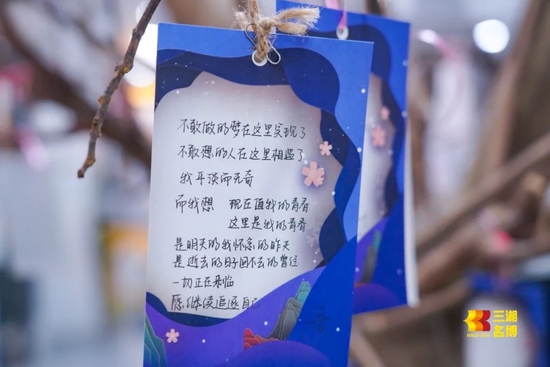 不敢做的梦在这里实现了
不敢想的人在这里相遇了
我平淡而无奇
而我想 现在值我的青春
这里是我的青春
是明天的我怀念的昨天
是逝去的日子回不去的曾经
一切正在来临
愿继续追逐自己
三湘
名博